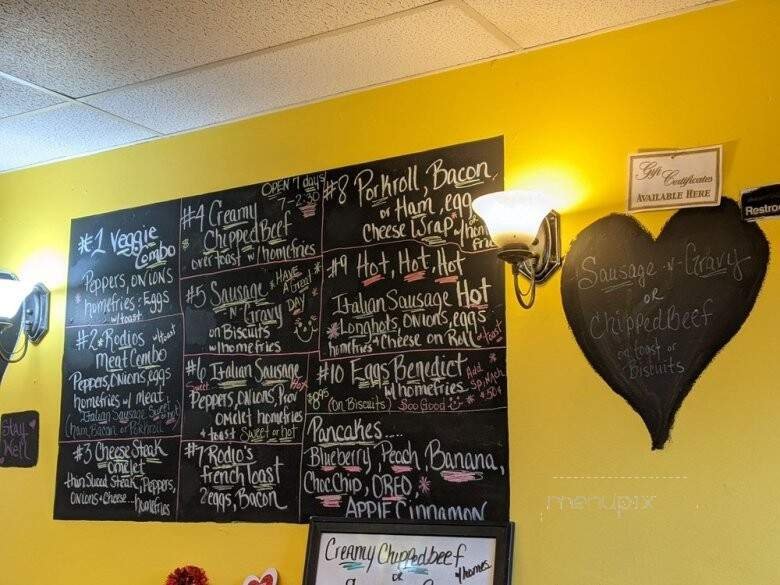 #1 Veggie
Combo
Peppers, onions
homefries + Eggs
w/toast
#2 Rodios w/toast
Meat Combo
Peppers, Onions, eggs
homefries w/ Meat
Italian Sausage Sweet or hot
(Ham, Bacon or Porkroll)
#3 Cheese Steak
omelet
thin Sliced Steak, Peppers,
Onions + Cheese w/ homefries
#4 Creamy
Chipped Beef
over toast w/ homefries
#5 Sausage
-N- Gravy
on Biscuits
w/homefries
HAVE
A Great
DAY
#6 Italian Sausage
Sweet Hot
Peppers, Onions, Prov
omelet homefries
+ toast Sweet or hot
#7 Rodio's
french Toast
2eggs, Bacon
OPEN 7 days
7-2:30
#8 Porkroll, Bacon
or Ham, egg
Cheese Wrap w/hom
frie
#9 Hot, Hot, Hot
Italian Sausage Hot
Longhots, Onions, eggs
homefries + Cheese on Roll
#10 Eggs Benedict
w/ homefries
$8.95 (on Biscuits) Soo Good
Add
Spinach
Pancakes....
Blueberry, Peach, Banana,
Choc Chip, OREO,
APPLE Cinnamon
Creamy Chipped beef
or w/homes
Gift
Certificates
AVAILABLE HERE
Restro
Sausage -n- Gravy
OR
Chipped Beef
on toast or
Biscuits
Stay
Well
menupix